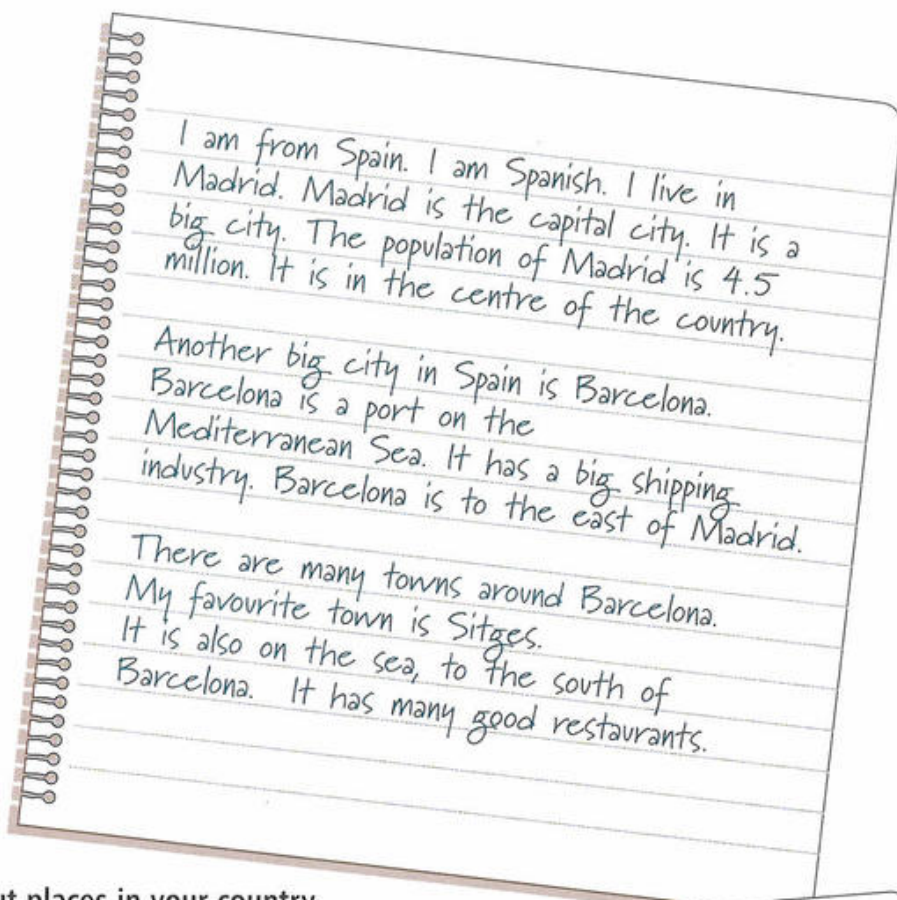 I am from Spain. I am Spanish. I live in
Madrid. Madrid is the capital city. It is a
big city. The population of Madrid is 4.5
million. It is in the centre of the country.
Another big city in Spain is Barcelona.
Barcelona is a port on the
Mediterranean Sea. It has a big shipping
industry. Barcelona is to the east of Madrid.
There are many towns around Barcelona.
My favourite town is Sitges.
It is also on the sea, to the south of
Barcelona. It has many good restaurants.
places in your country